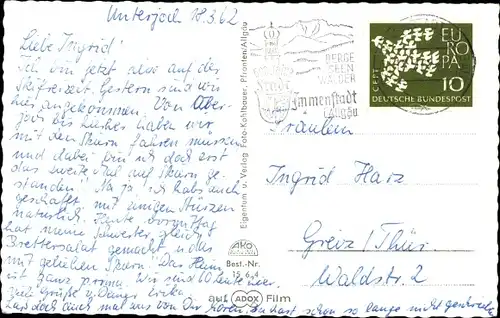 Unterjoch 18.3.62
Liebe Ingrid!
Ich bin jetzt also auf der
Skifreizeit. Gestern sind wir
hier angekommen. Von Ober-
joch bis hierher haben wir
mit den Skiern fahren müssen
und dabei bin ich doch erst
das zweite Mal auf Skiern ge-
standen! Na ja, ich habs auch
geschafft mit einigen Stürzen
natürlich. Heute vormittag
hat meine Schwester gleich
Brettersalat gemacht
mit geliehen Skiern. Das Heim
ist ganz prima. Wir sind 60 Leute hier.
Viele Grüße
Laß doch auch mal von Dir hören, Du hast schon so lange nicht geschrieben
Eigentum u. Verlag Foto-Kohlbauer, Pfronten/Allgäu
BERGE
SEEN
WÄLDER
Immenstadt
Allgäu
EUROPA
CEPT
10
DEUTSCHE BUNDESPOST
Fräulein
Ingrid Harz
Greiz/Thür.
Waldstr. 2
AKO
Best.-Nr.
15 6 4
auf ADOX Film